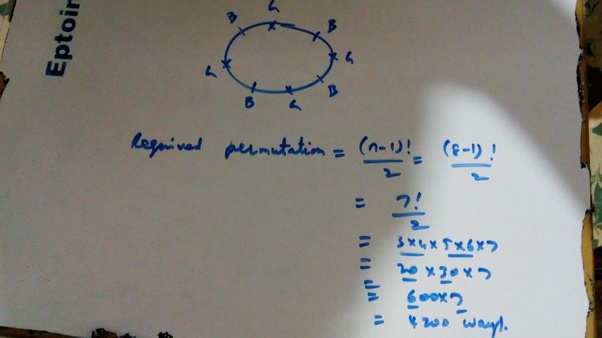 Eptoin
G
B
B
G
G
B
B
G
Required permutation = (n-1)!/2 = (8-1)!/2
= 7!/2
= 3×4×5×6×7
= 20×30×7
= 600×7
= 4200 ways.